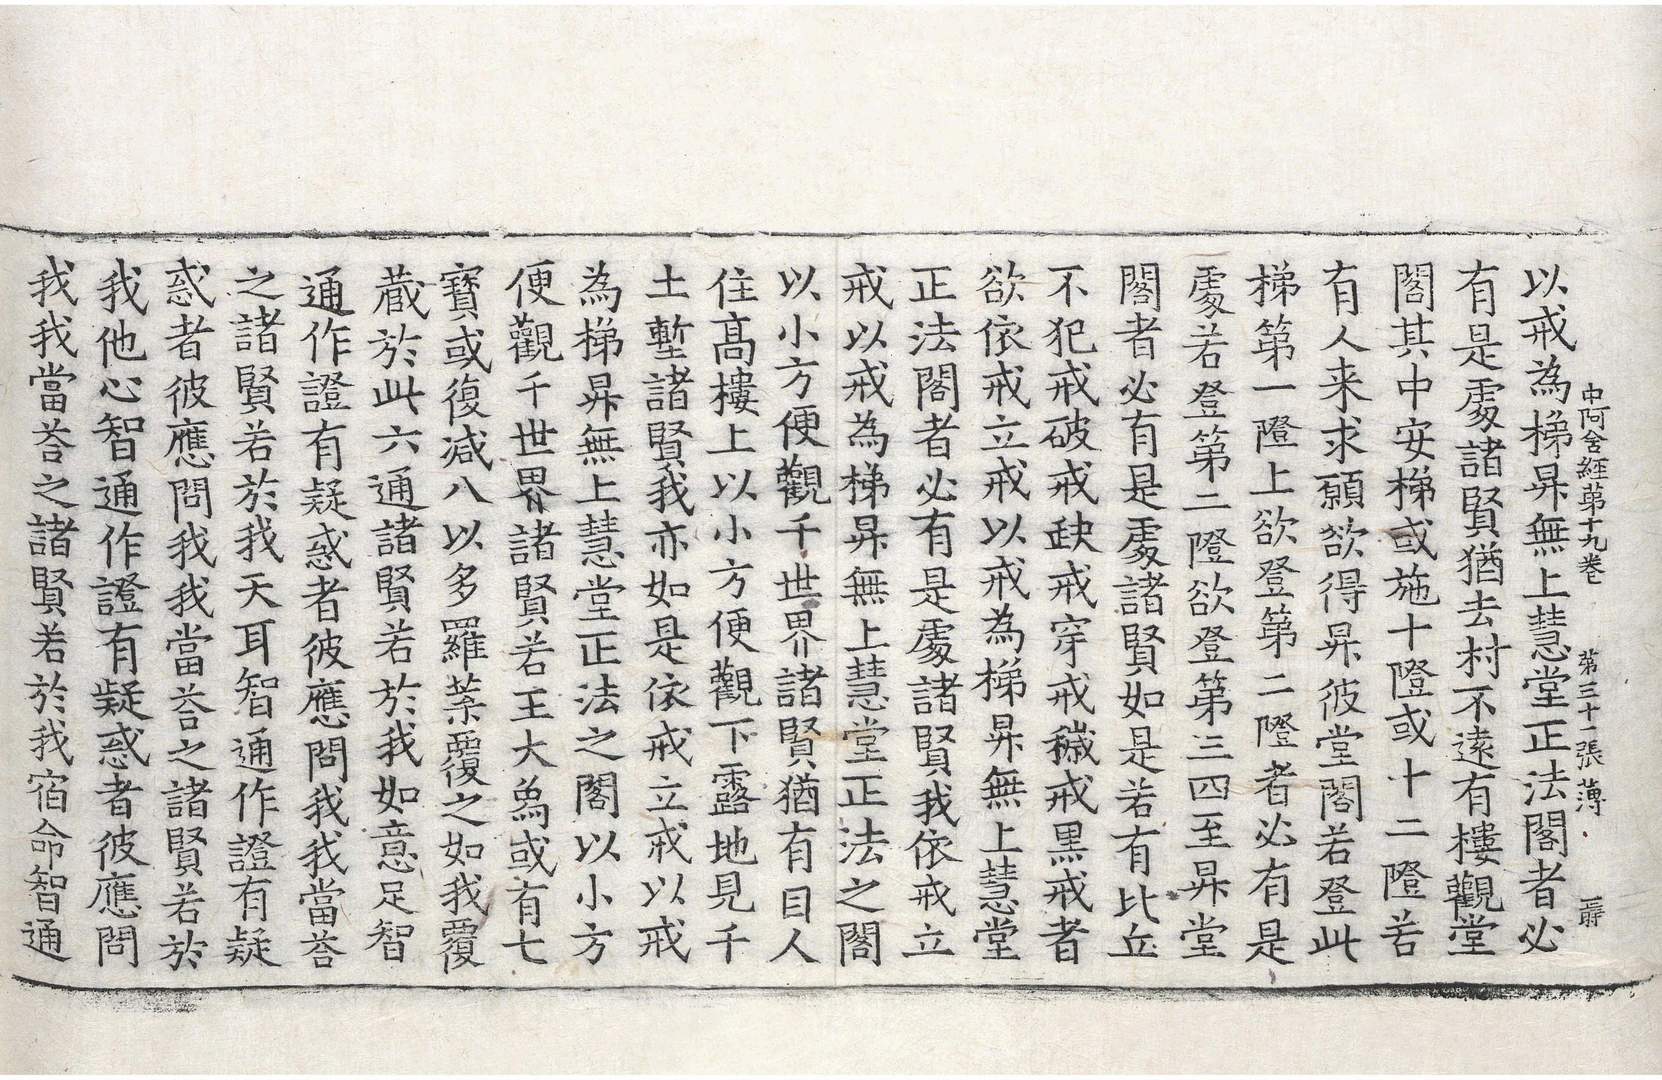 中阿含經第十九卷 第三十一張 薄
以戒為梯昇無上慧堂正法閣者必
有是處諸賢猶去村不遠有樓觀堂
閣其中安梯或施十隥或十二隥若
有人来求願欲得昇彼堂閣若登此
梯第一隥上欲登第二隥者必有是
處若登第二隥欲登第三四至昇堂
閣者必有是處諸賢如是若有比丘
不犯戒破戒缺戒穿戒穢戒黑戒者
欲依戒立戒以戒為梯昇無上慧堂
正法閣者必有是處諸賢我依戒立
戒以戒為梯昇無上慧堂正法之閣
以小方便觀千世界諸賢猶有目人
住高樓上以小方便觀下露地見千
土墼諸賢我亦如是依戒立戒以戒
為梯昇無上慧堂正法之閣以小方
便觀千世界諸賢若王大象或有七
寶或復減八以多羅葉覆之如我覆
蔵於此六通諸賢若於我如意足智
通作證有疑惑者彼應問我我當荅
之諸賢若於我天耳智通作證有疑
惑者彼應問我我當荅之諸賢若於
我他心智通作證有疑惑者彼應問
我我當荅之諸賢若於我宿命智通